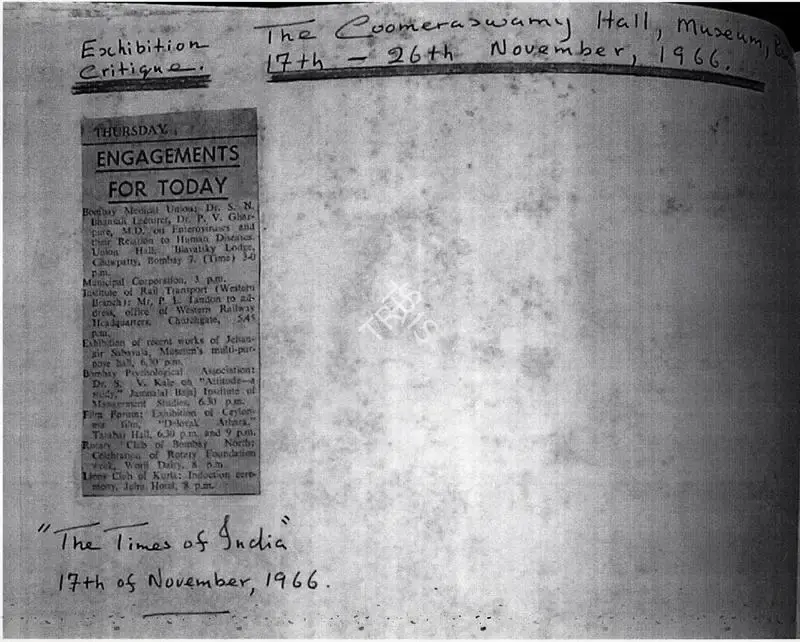 Exhibition
Critique.
The Coomeraswamy Hall, Museum,
17th – 26th November, 1966.
THURSDAY
ENGAGEMENTS
FOR TODAY
Bombay Medical Union: Dr. S. N.
Lecturer, Dr. P. V. Ghar-
pure, M.D. on Enteroviruses and
their Relation to Human Diseases,
Union Hall, Blavatsky Lodge,
Chowpatty, Bombay 7. (Time)
p.m.
Municipal Corporation, 3 p.m.
Institute of Rail Transport (Western
Branch): Mr. P. L. Tandon to ad-
dress, office of Western Railway
Headquarters, Churchgate, 5.45
p.m.
Exhibition of recent works of Jehan-
gir Sabavala, Museum's multi-pur-
pose hall, 6.30 p.m.
Bombay Psychological Association:
Dr. S. V. Kale on "Attitude—a
study," Jamnalal Bajaj Institute of
Management Studies, 6.30 p.m.
Film Forum: Exhibition of Ceylon-
ese film,
Tarabai Hall, 6.30 p.m. and 9 p.m.
Rotary Club of Bombay North:
Celebration of Rotary Foundation
week, Worli Dairy, 8 p.m.
Lions Club of Kurla: Induction cere-
mony, Hotel, 8 p.m.
"The Times of India"
17th of November, 1966.